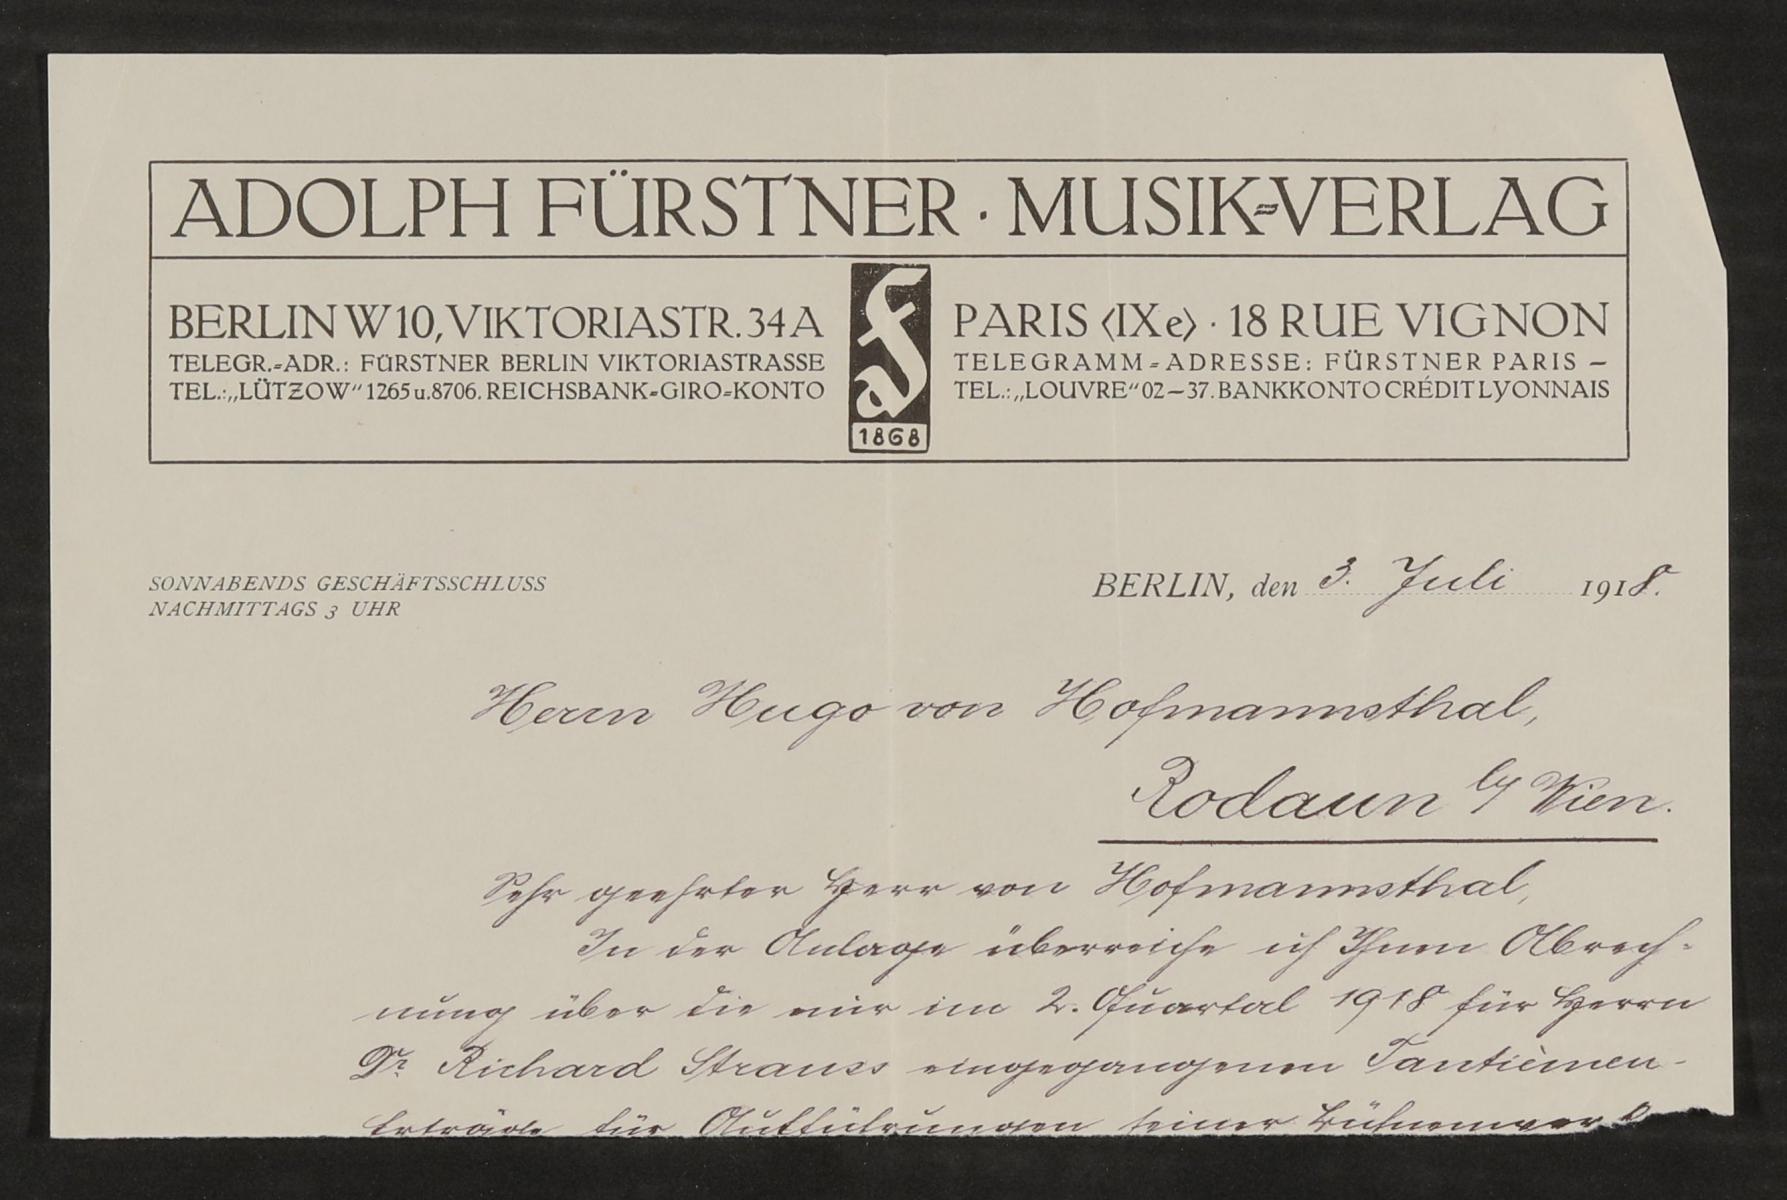 ADOLPH FÜRSTNER · MUSIK=VERLAG
BERLIN W 10, VIKTORIASTR. 34A
TELEGR.=ADR.: FÜRSTNER BERLIN VIKTORIASTRASSE
TEL.: „LÜTZOW“ 1265 u. 8706. REICHSBANK=GIRO=KONTO
aF
1868
PARIS (IXe) · 18 RUE VIGNON
TELEGRAMM=ADRESSE: FÜRSTNER PARIS –
TEL.: „LOUVRE“ 02–37. BANKKONTO CRÉDIT LYONNAIS
SONNABENDS GESCHÄFTSSCHLUSS
NACHMITTAGS 3 UHR
BERLIN, den 3. Juli 1918.
Herrn Hugo von Hofmannsthal,
Rodaun b/ Wien.
Sehr geehrter Herr von Hofmannsthal,
In der Anlage überreiche ich Ihnen Abrech-
nung über die mir im 2. Quartal 1918 für Herrn
Dr. Richard Strauss eingegangenen Tantièmen-
Erträge für Aufführungen seiner Bühnenwerke